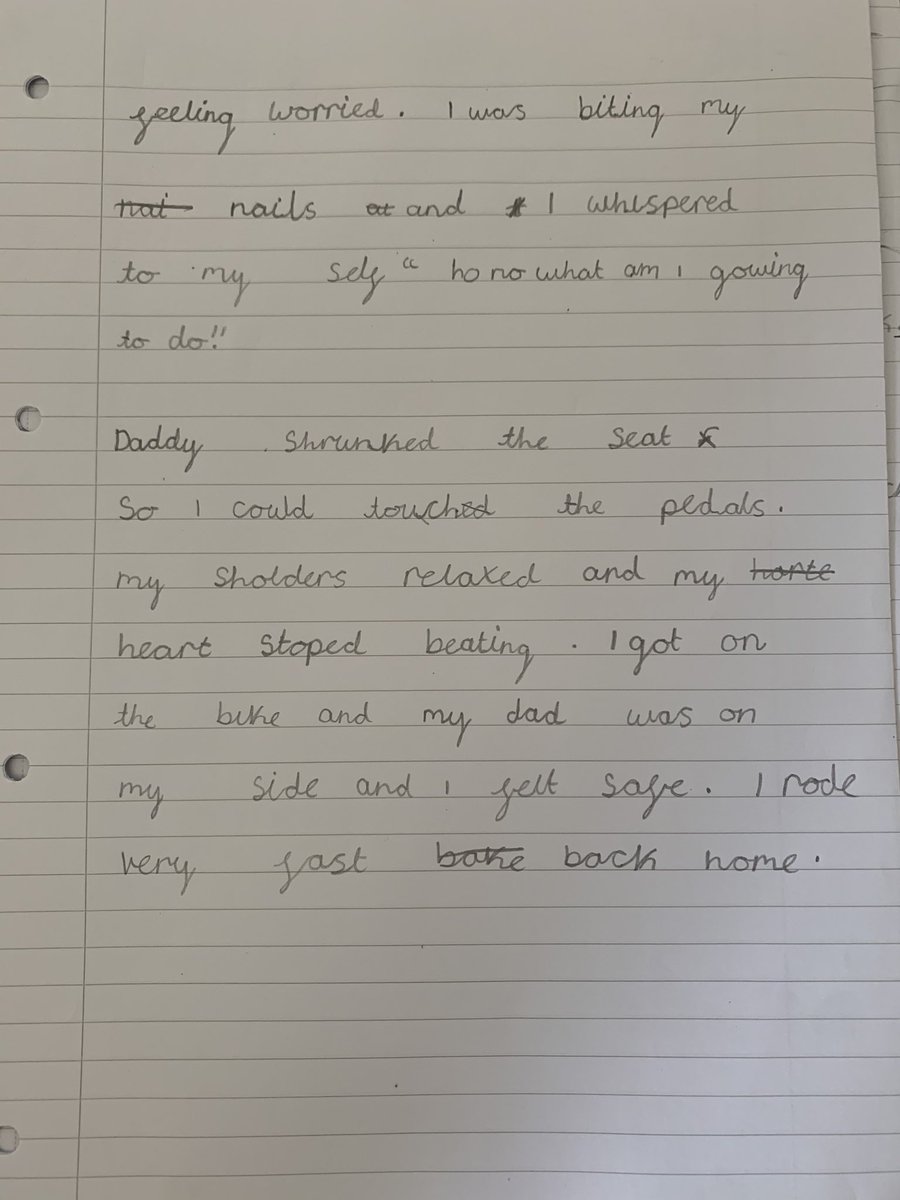 feeling worried. I was biting my
nai nails at and I whispered
to my self " ho no what am i gowing
to do!!
Daddy shrunked the seat
So I could touched the pedals.
my sholders relaxed and my horte
heart stoped beating. I got on
the bike and my dad was on
my side and I felt safe. I rode
very fast bake back home.